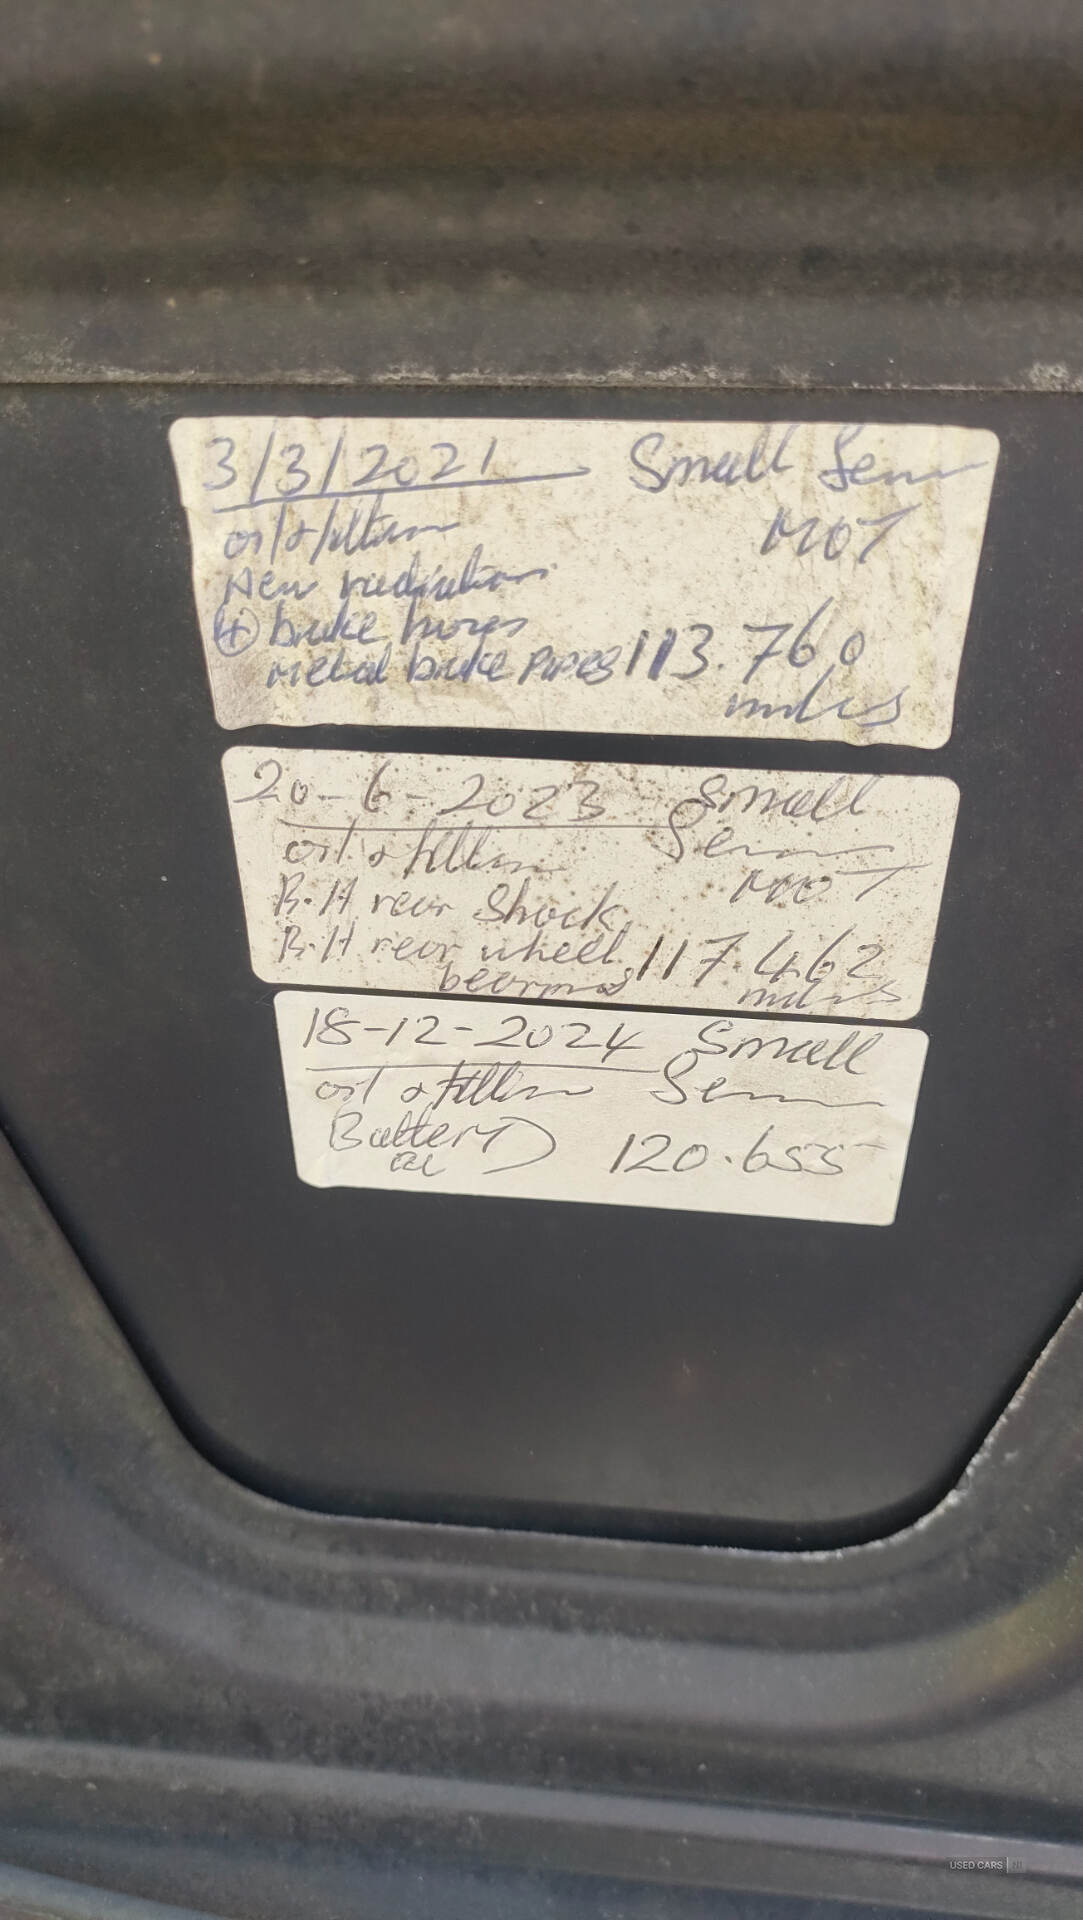 3/3/2021 Small Serv
oil & filter MOT
New radiator
④ brake hoses
metal brake pipes 113.760
miles
20-6-2023 Small
oil & filter Serv
R.H rear Shock MOT
R.H rear wheel 117.462
bearings miles
18-12-2024 Small
oil & filter Serv
Battery 120.655
USED CARS NI